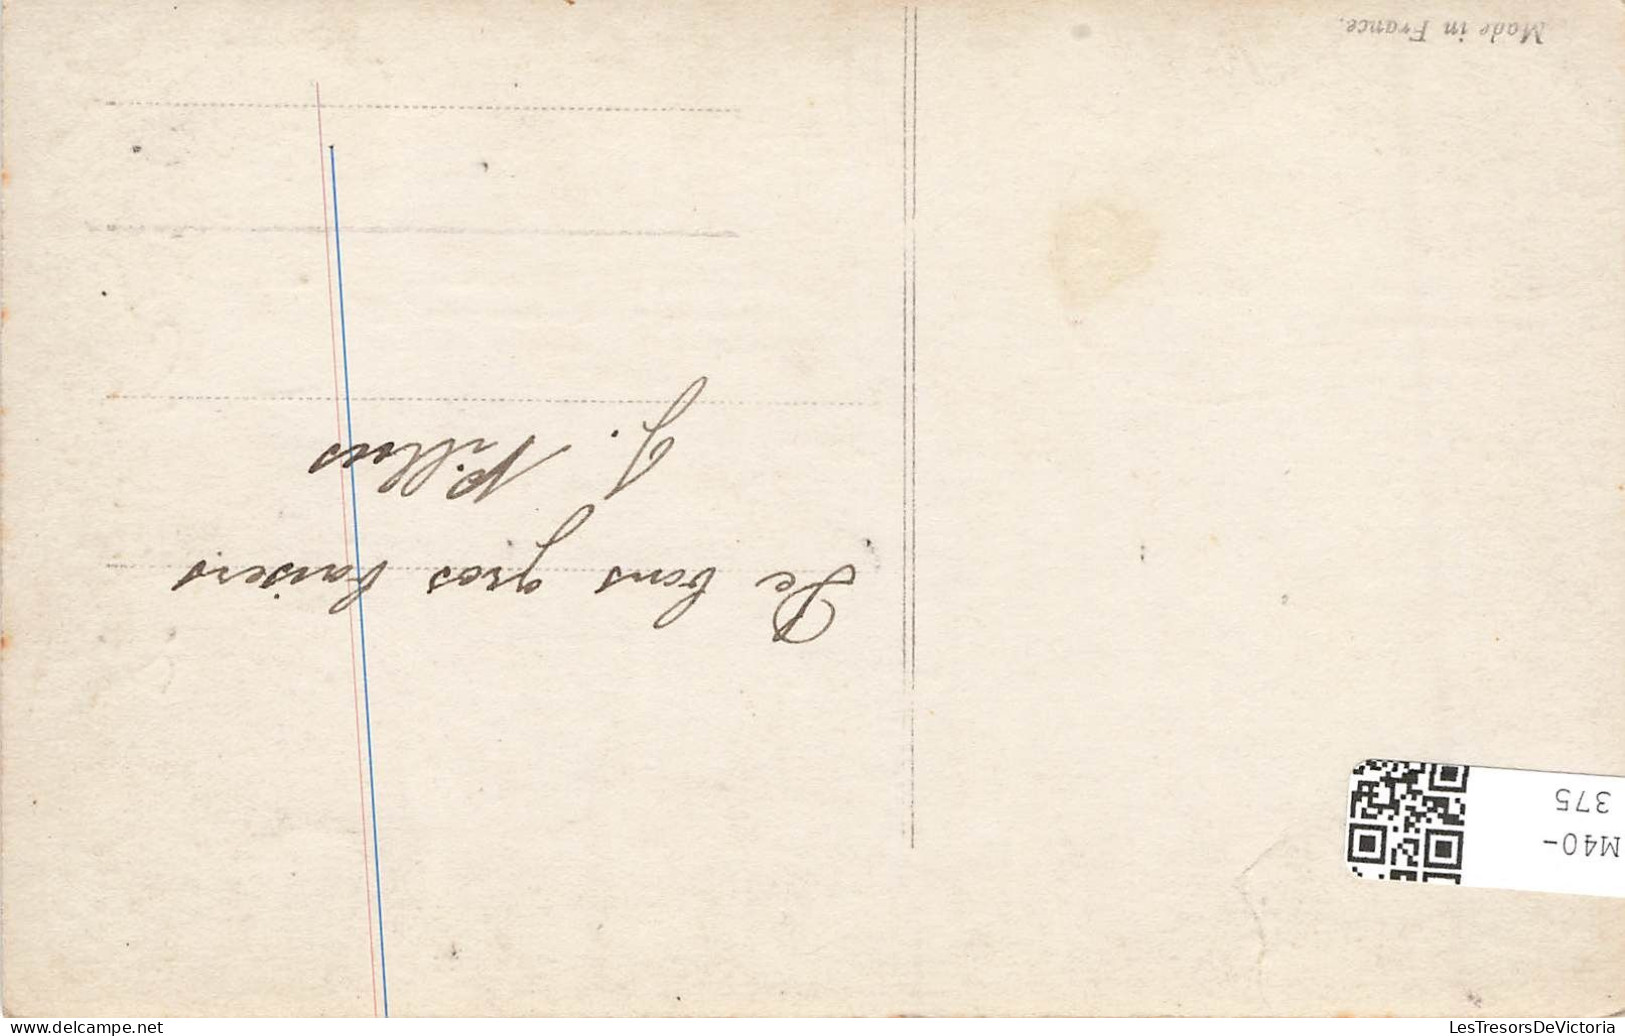 Made in France.
De bons gros baisers
J.
M40-
375
www.delcampe.net
LesTresorsDeVictoria